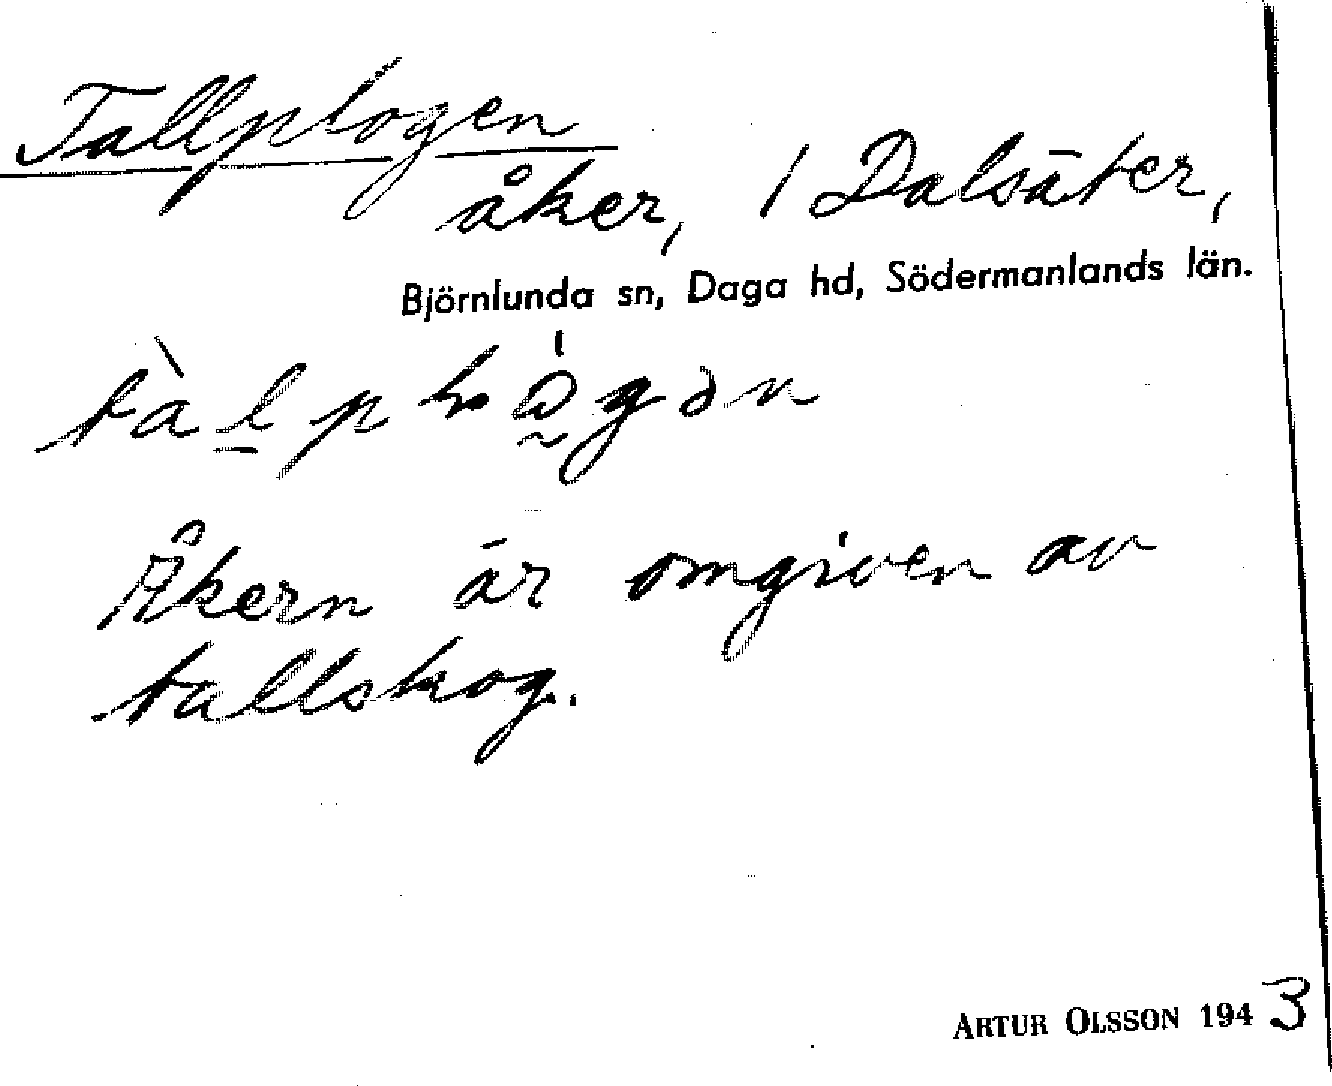 Tallplogen
åker, / Dalsäter,
Björnlunda sn, Daga hd, Södermanlands län.
Åkern är omgiven av
tallskog.
ARTUR OLSSON 1943